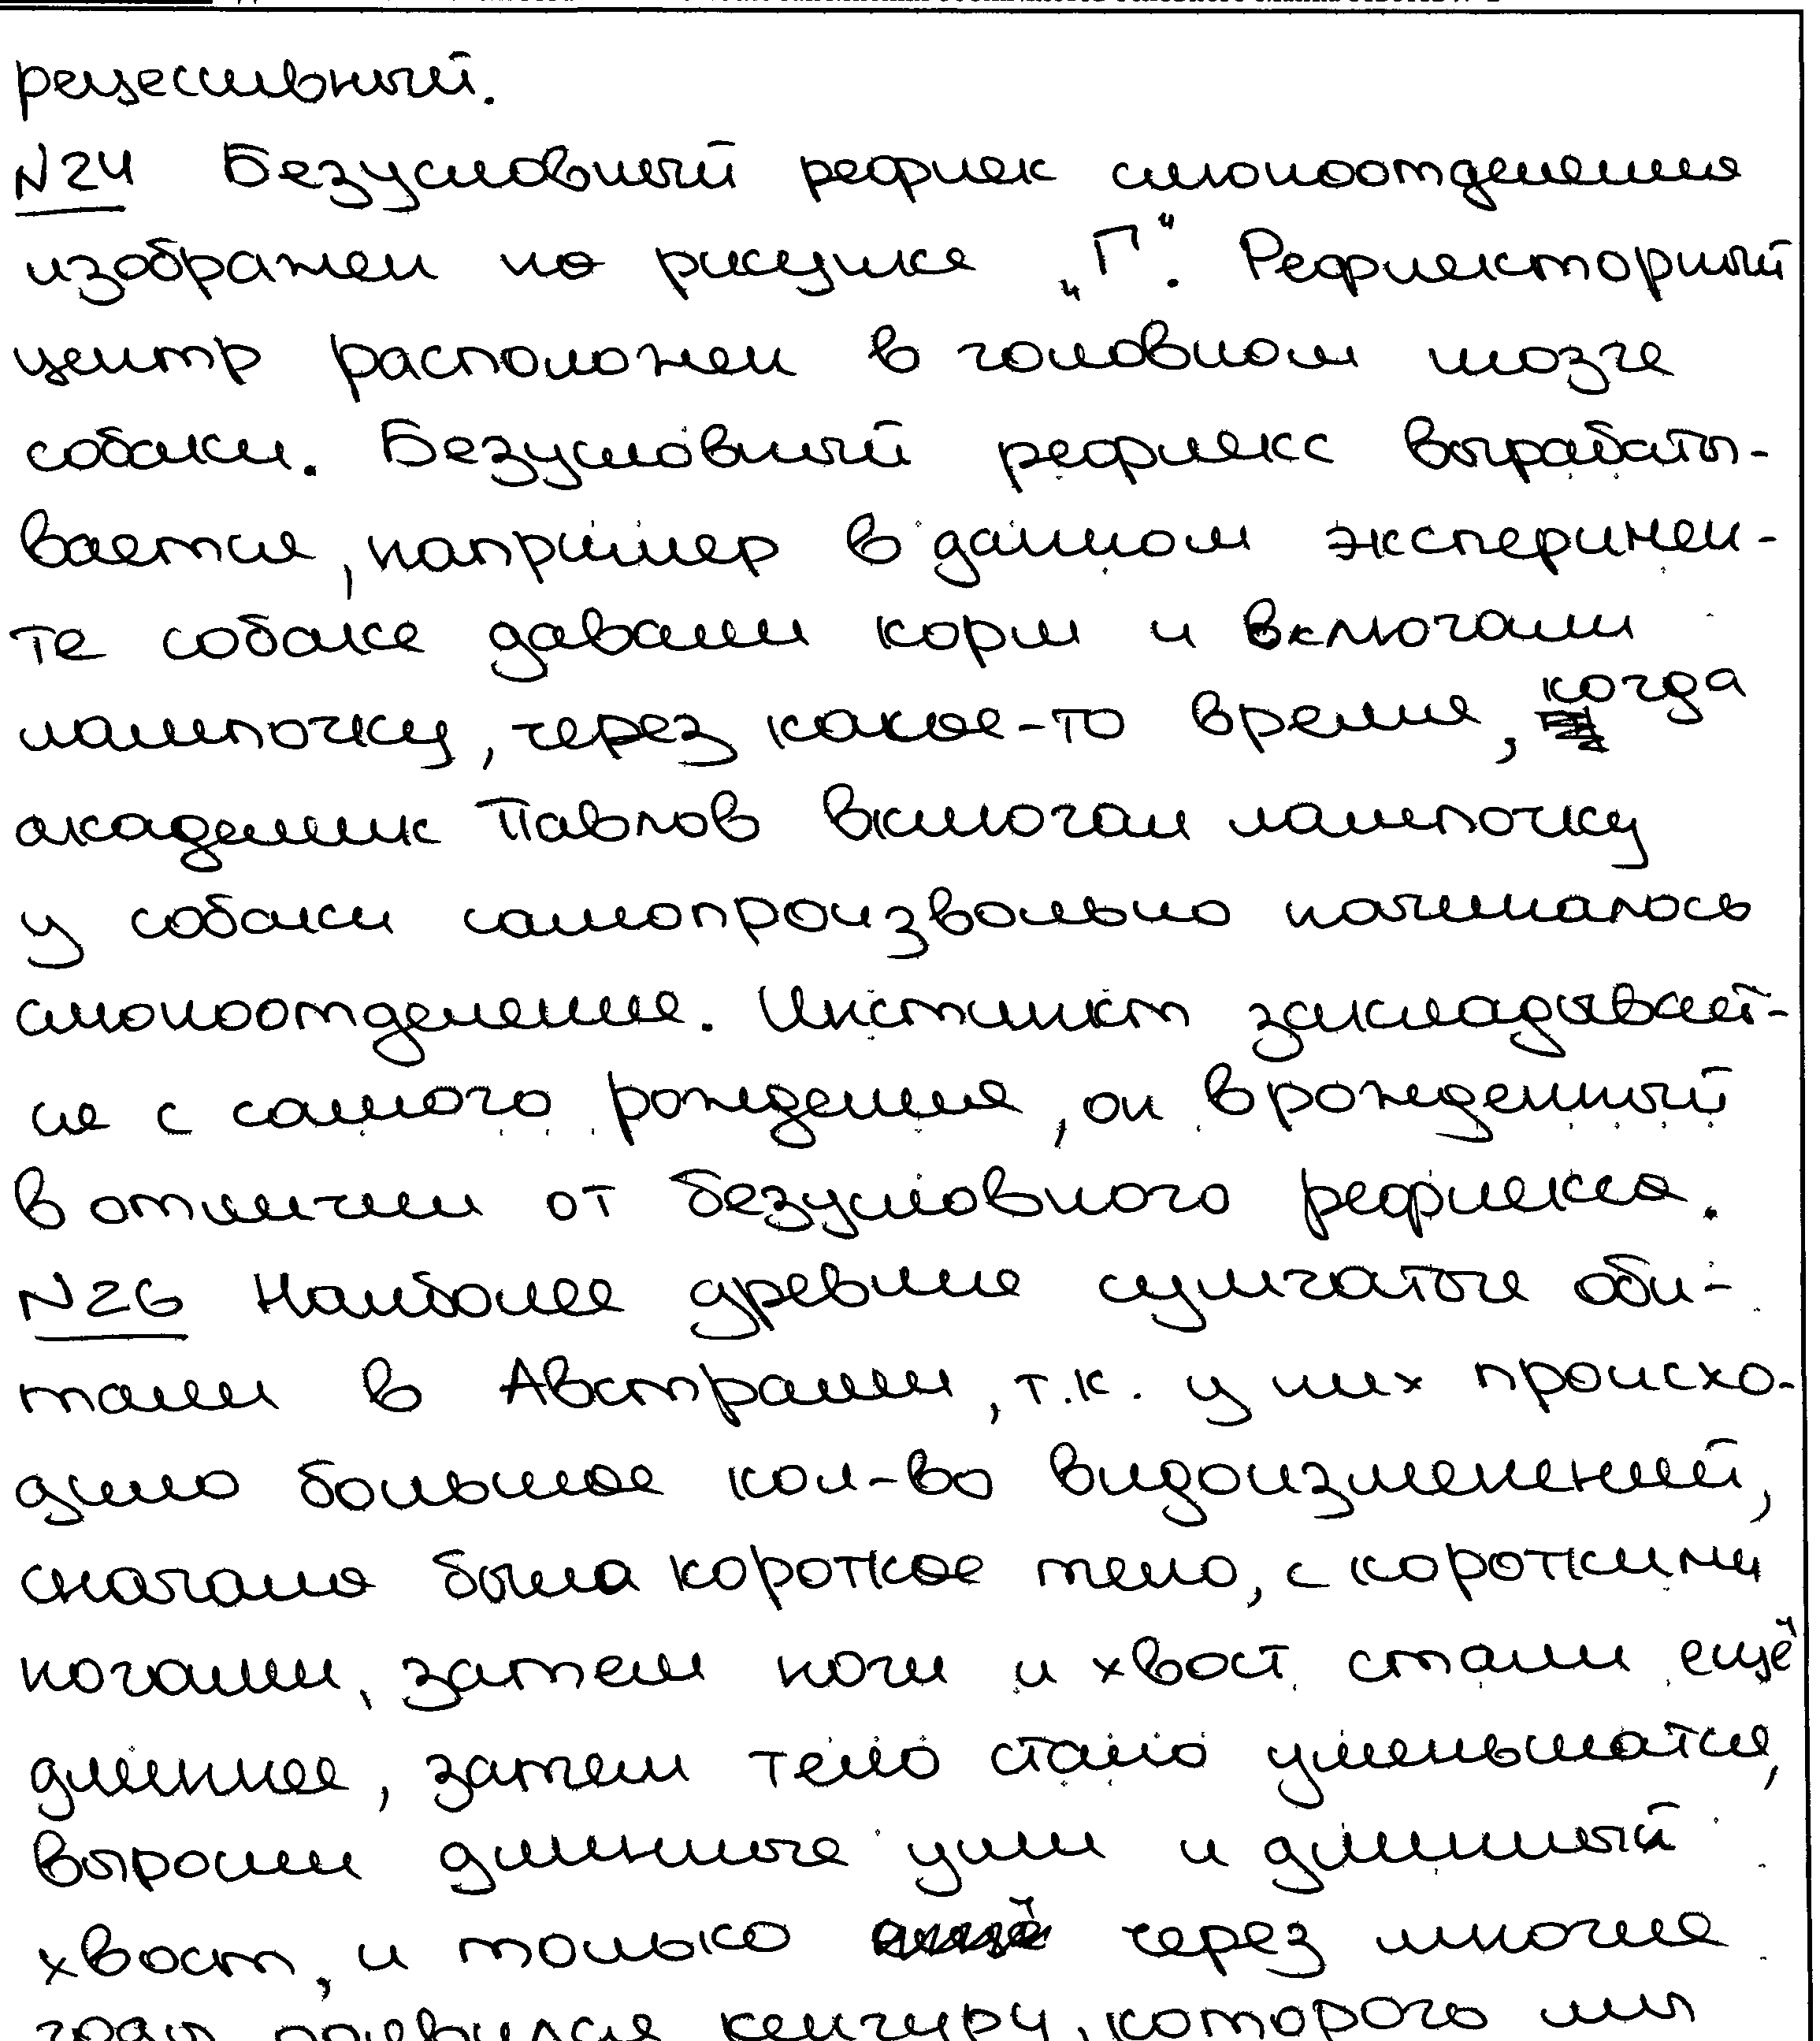 рецессивный.
N24 Безусловный рефлек слюноотделения
изображен на рисунке „Г“. Рефлекторный
центр расположен в головном мозге
собаки. Безусловный рефлекс вырабаты-
вается, например в данном эксперимен-
те собаке давали корм и включали
лампочку, через какое-то время, когда
академик Павлов включал лампочку
у собаки самопроизвольно начиналось
слюноотделение. Инстинкт закладывает-
ся с самого рождения, он врожденный
в отличии от безусловного рефлекса.
N26 Наиболее древние сумчатые оби-
тали в Австралии, т.к. у них происхо-
дило большое кол-во видоизменений,
сначала было короткое тело, с короткими
ногами, затем ноги и хвост стали ещё
длиннее, затем тело стало уменьшатся,
выросли длинные уши и длинный
хвост, и только через многие
годы появился кенгуру, которого мы